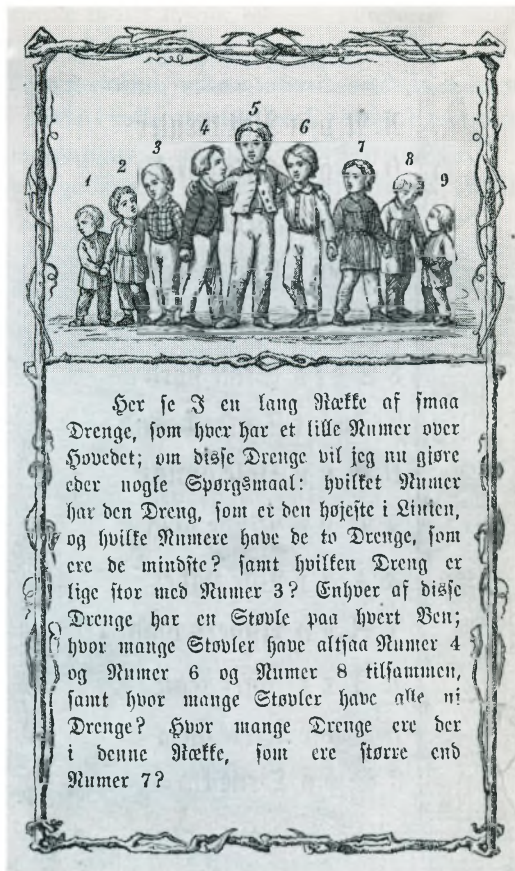 1 2 3 4 5 6 7 8 9
Her se I en lang Række af smaa
Drenge, som hver har et lille Numer over
Hovedet; om disse Drenge vil jeg nu gjøre
eder nogle Spørgsmaal: hvilket Numer
har den Dreng, som er den højeste i Linien,
og hvilke Numere have de to Drenge, som
ere de mindste? samt hvilken Dreng er
lige stor med Numer 3? Enhver af disse
Drenge har en Støvle paa hvert Ben;
hvor mange Støvler have altsaa Numer 4
og Numer 6 og Numer 8 tilsammen,
samt hvor mange Støvler have alle ni
Drenge? Hvor mange Drenge ere der
i denne Række, som ere større end
Numer 7?